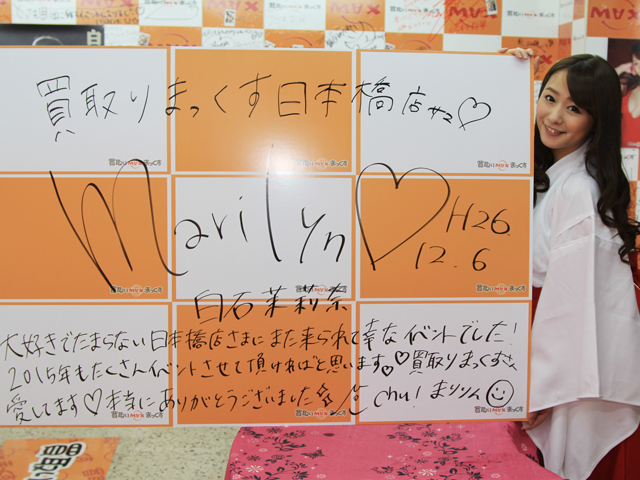 買取りまっくす日本橋店サマ♡
Marilyn♡
H26.
12.6
白石茉莉奈
大好きでたまらない日本橋店さまにまた来られて幸なイベントでした！
2015年もたくさんイベントさせて頂ければと思います♡♡買取りまっくすさん
愛してます♡本当にありがとうございました Chu! まりりん☺
買取りMUXまっくす
買取りMUXまっくす
買取りMUXまっくす
買取りMUXまっくす
買取りMUXまっくす
買取りMUXまっくす
買取りMUXまっくす
MUX
MUX